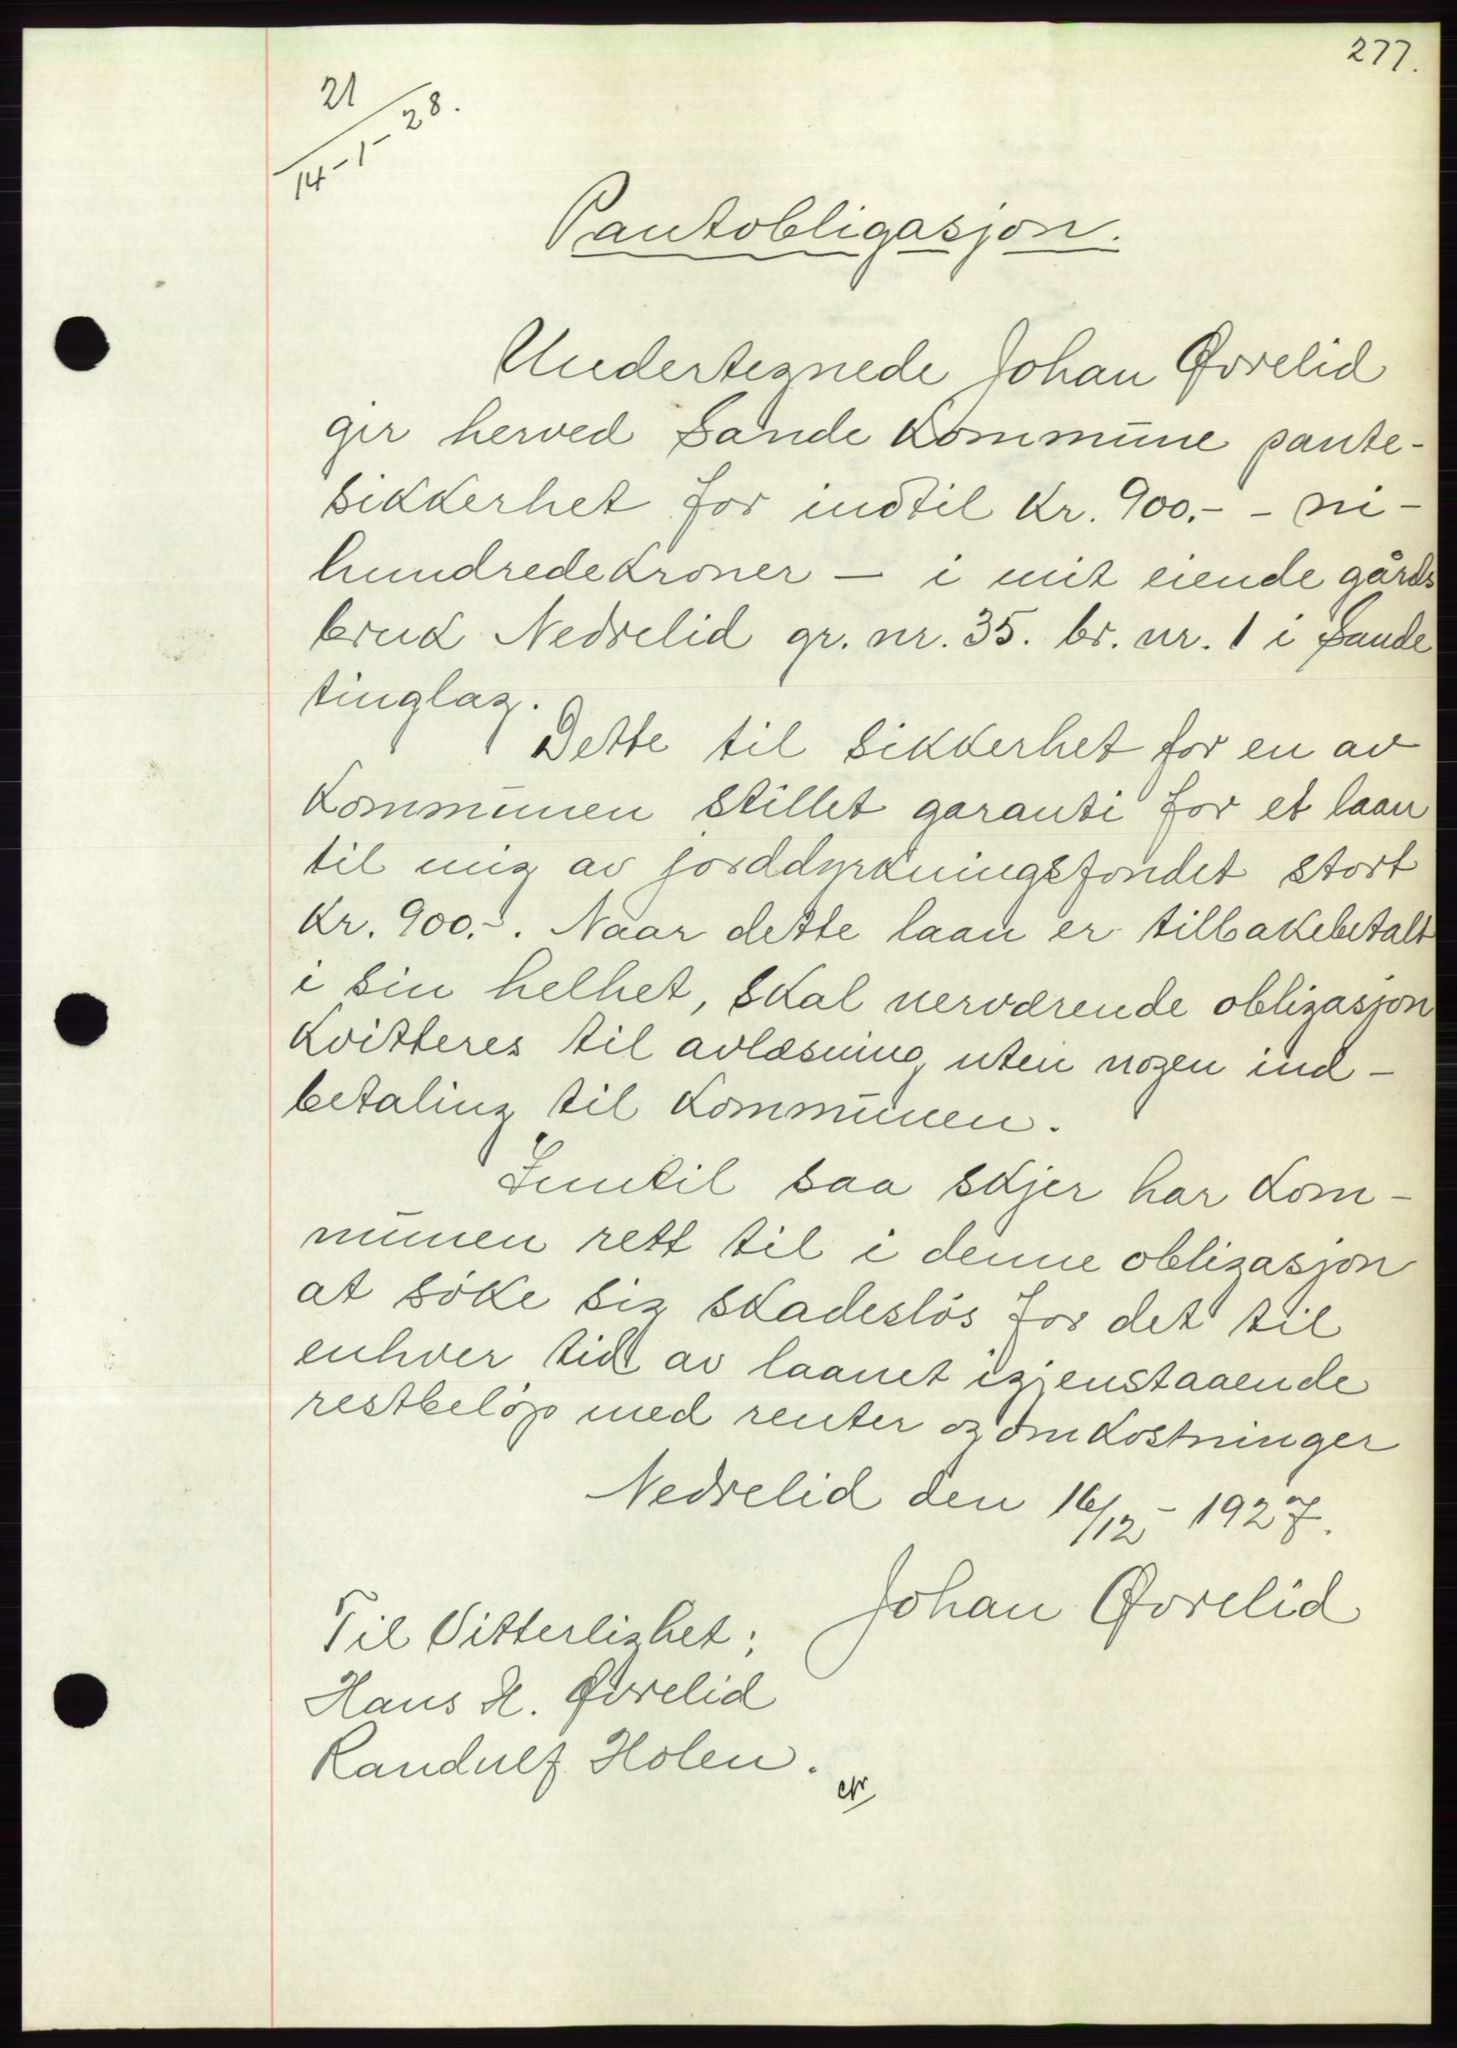 277.
21
14-1-28.
Pantobligasjon.
Undertegnede Johan Øvrelid
gir herved Sande Kommune pante-
sikkerhet for indtil Kr. 900.- - ni-
hundredekroner - i mit eiende gårds
bruk Nedrelid gr. nr. 35. br. nr. 1 i Sande
tinglag.
Dette til sikkerhet for en av
Kommunen stillet garanti for et laan
til mig av jorddyrkningsfondet stort
Kr. 900.-. Naar dette laan er tilbakebetalt
i sin helhet, skal nerværende obligasjon
Kvitteres til avlæsning, uten nogen ind-
betaling til Kommunen.
Inntil saa skjer har Kom-
munen rett til i denne obligasjon
at søke sig skadesløs for det til
enhver tid av laanet igjenstaaende
restbeløp med renter og omkostninger
Nedrelid den 16/12 - 1927.
Johan Øvrelid
Til Vitterlighet:
Hans H. Øvrelid
Randulf Holen.